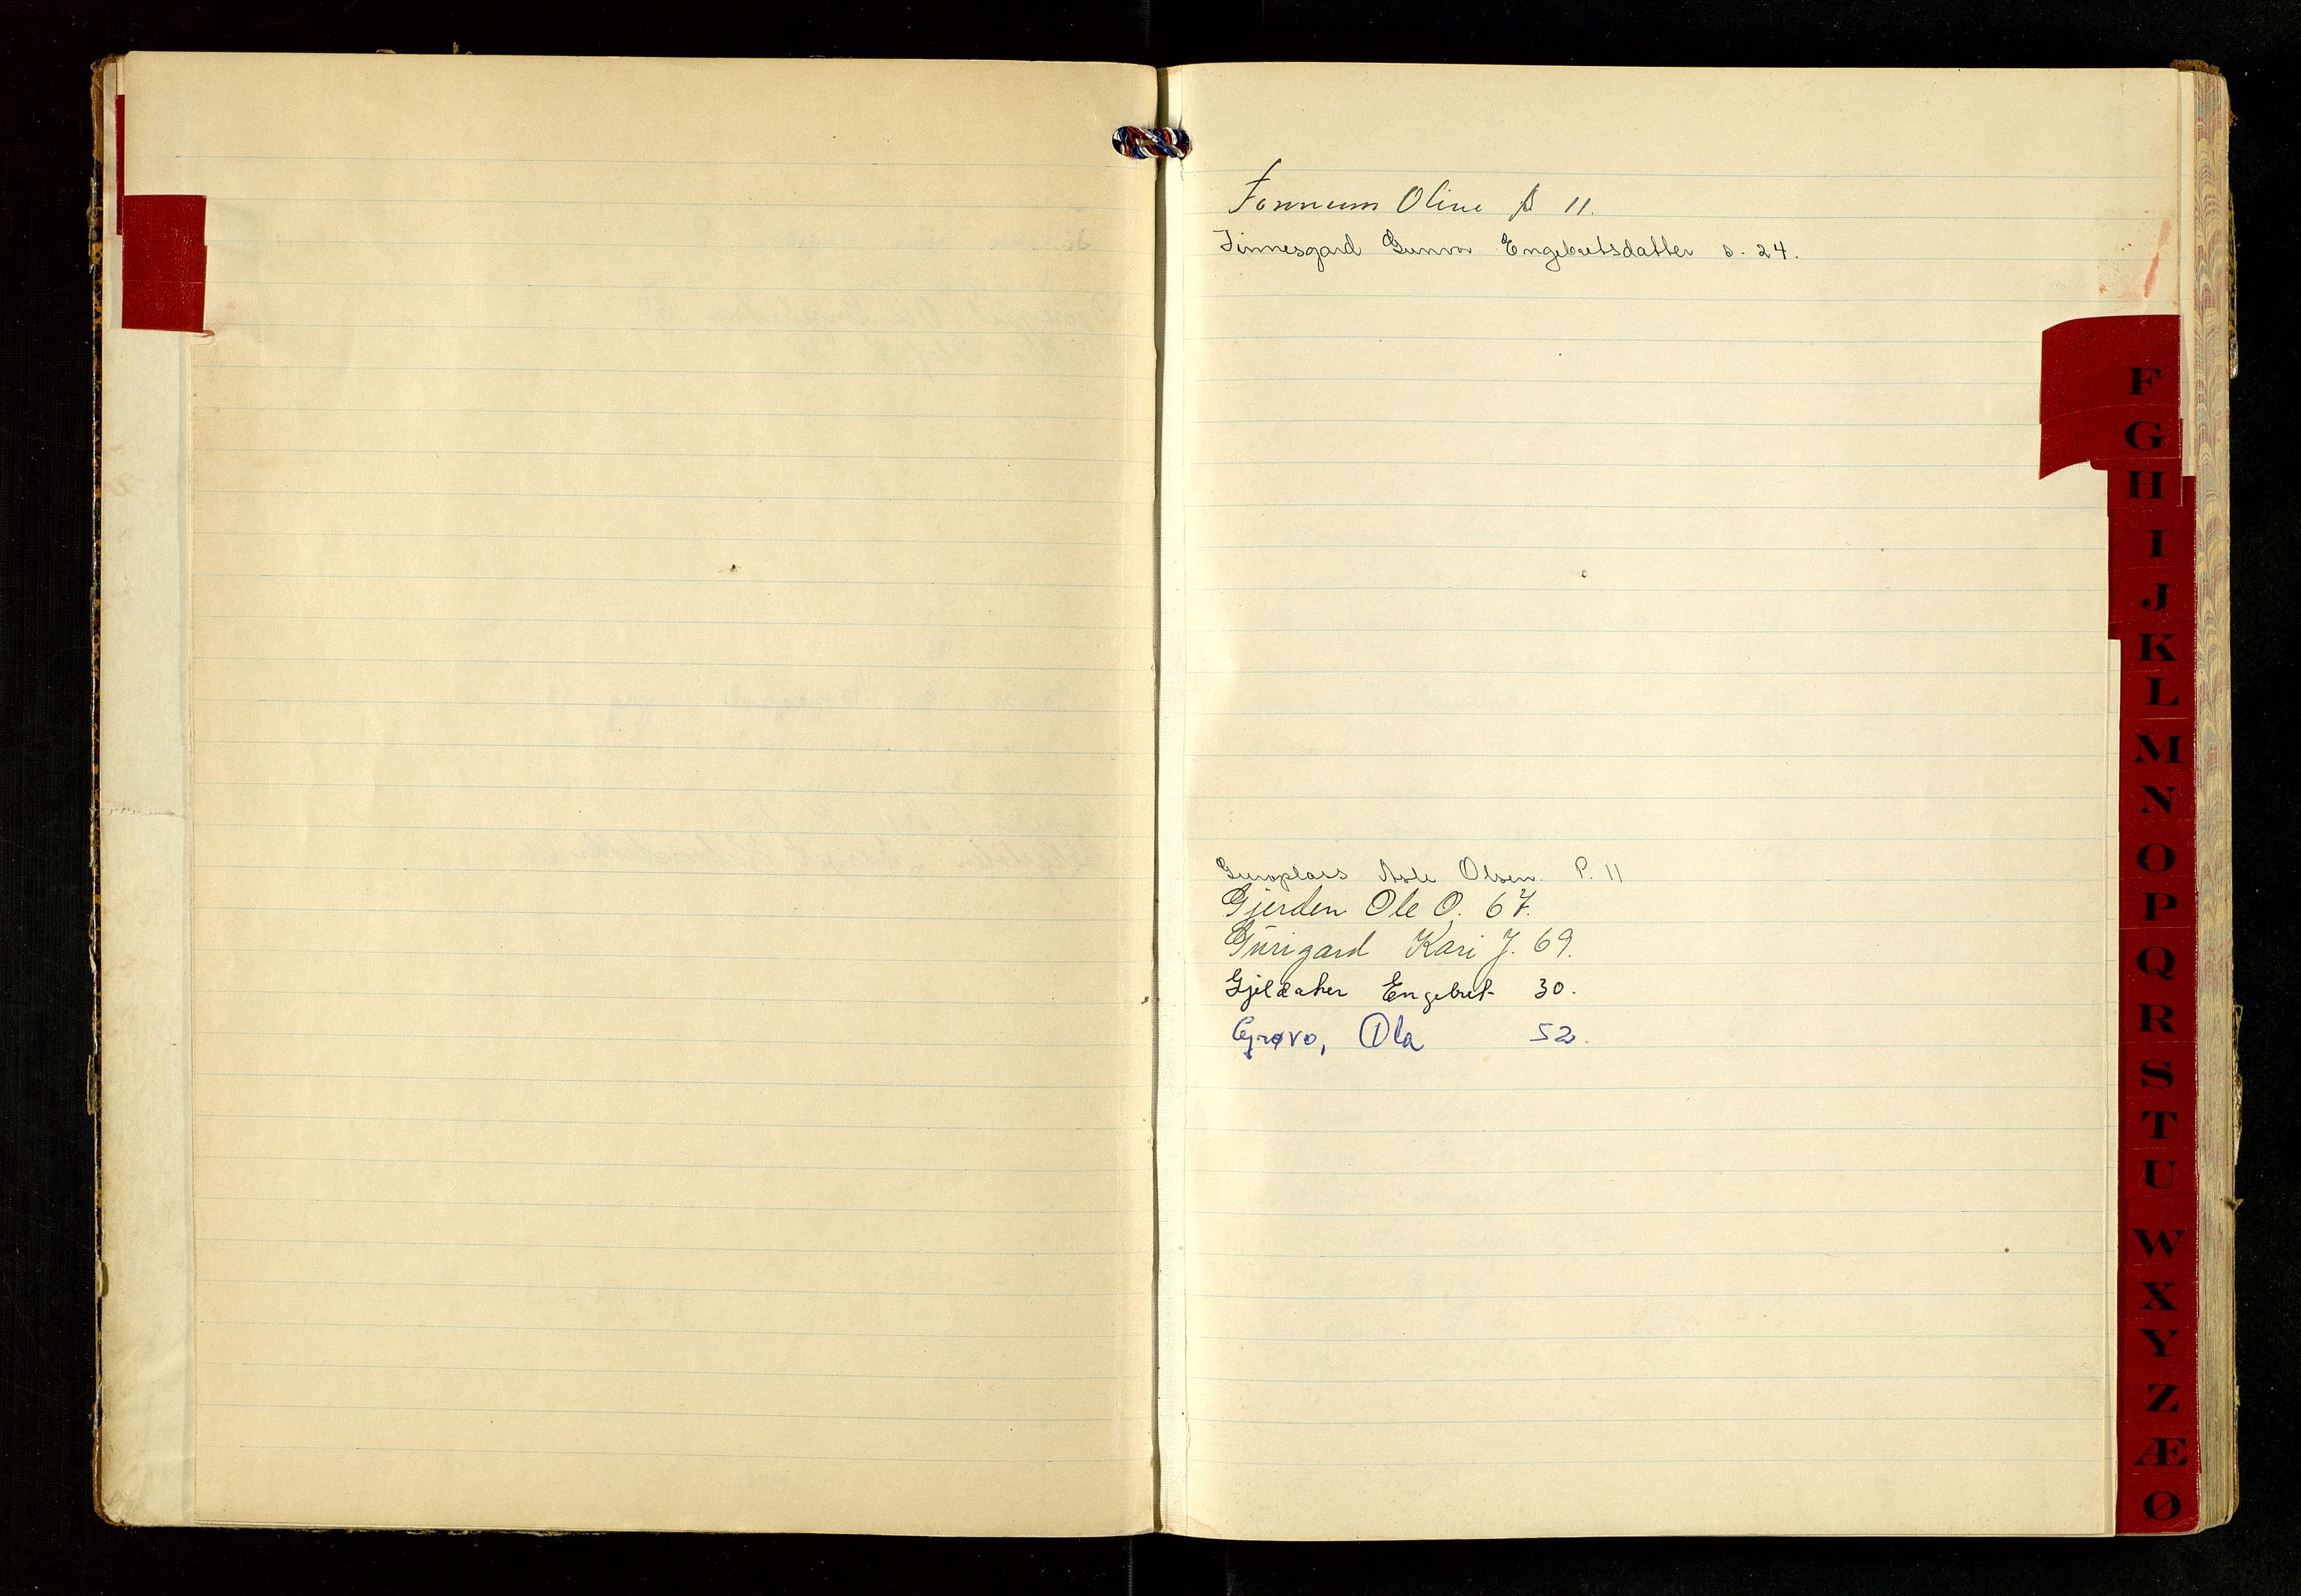 Fonnum Oline S 11.
Finnesgard Gunvor Engebretsdatter s. 24.
Guroplass Asle Olsen. P. 11
Gjerden Ole O. 67.
Gurigard Kari J. 69.
Gjeldaker Engebret 30.
Grøvo, Ola 52.
F
G
H
I
J
K
L
M
N
O
P
Q
R
S
T
U
W
X
Y
Z
Æ
Ø